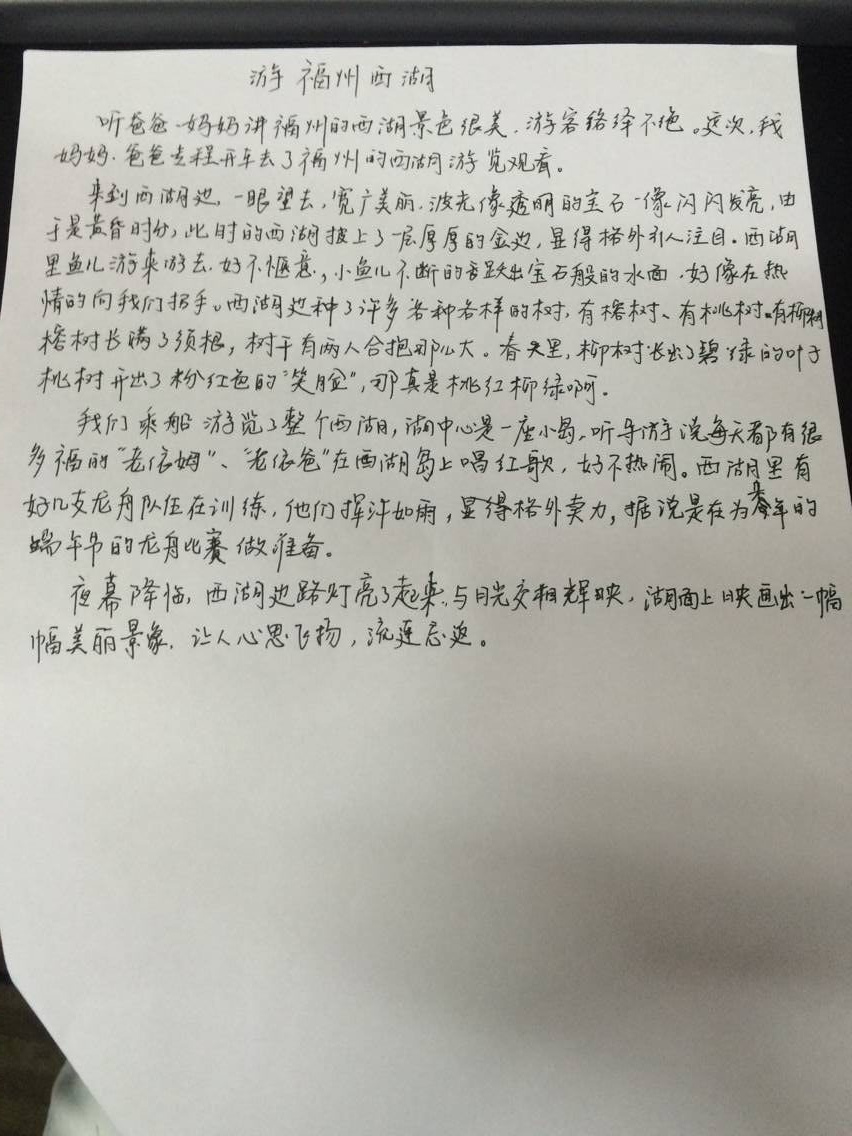 游福州西湖
听爸爸妈妈讲福州的西湖景色很美，游客络绎不绝。这次，我
妈妈、爸爸专程开车去了福州的西湖游览观看。
来到西湖边，一眼望去，宽广美丽，波光像透明的宝石一像闪闪发亮，由
于是黄昏时分，此时的西湖披上了一层厚厚的金边，显得格外引人注目。西湖
里鱼儿游来游去，好不惬意，小鱼儿不断的跃出宝石般的水面，好像在热
情的向我们招手。西湖边种了许多各种各样的树，有榕树、有桃树、有柳树
榕树长满了须根，树干有两人合抱那么大。春天里，柳树长出了碧绿的叶子
桃树开出了粉红色的“笑脸”，那真是桃红柳绿啊。
我们乘船游览了整个西湖，湖中心是一座小岛，听导游说每天都有很
多福的“老依姆”、“老依爸”在西湖岛上唱红歌，好不热闹。西湖里有
好几支龙舟队伍在训练，他们挥汗如雨，显得格外卖力，据说是在为来年的
端午节的龙舟比赛做准备。
夜幕降临，西湖边路灯亮了起来，与月光交相辉映，湖面上映画出一幅
幅美丽景象，让人心思飞扬，流连忘返。